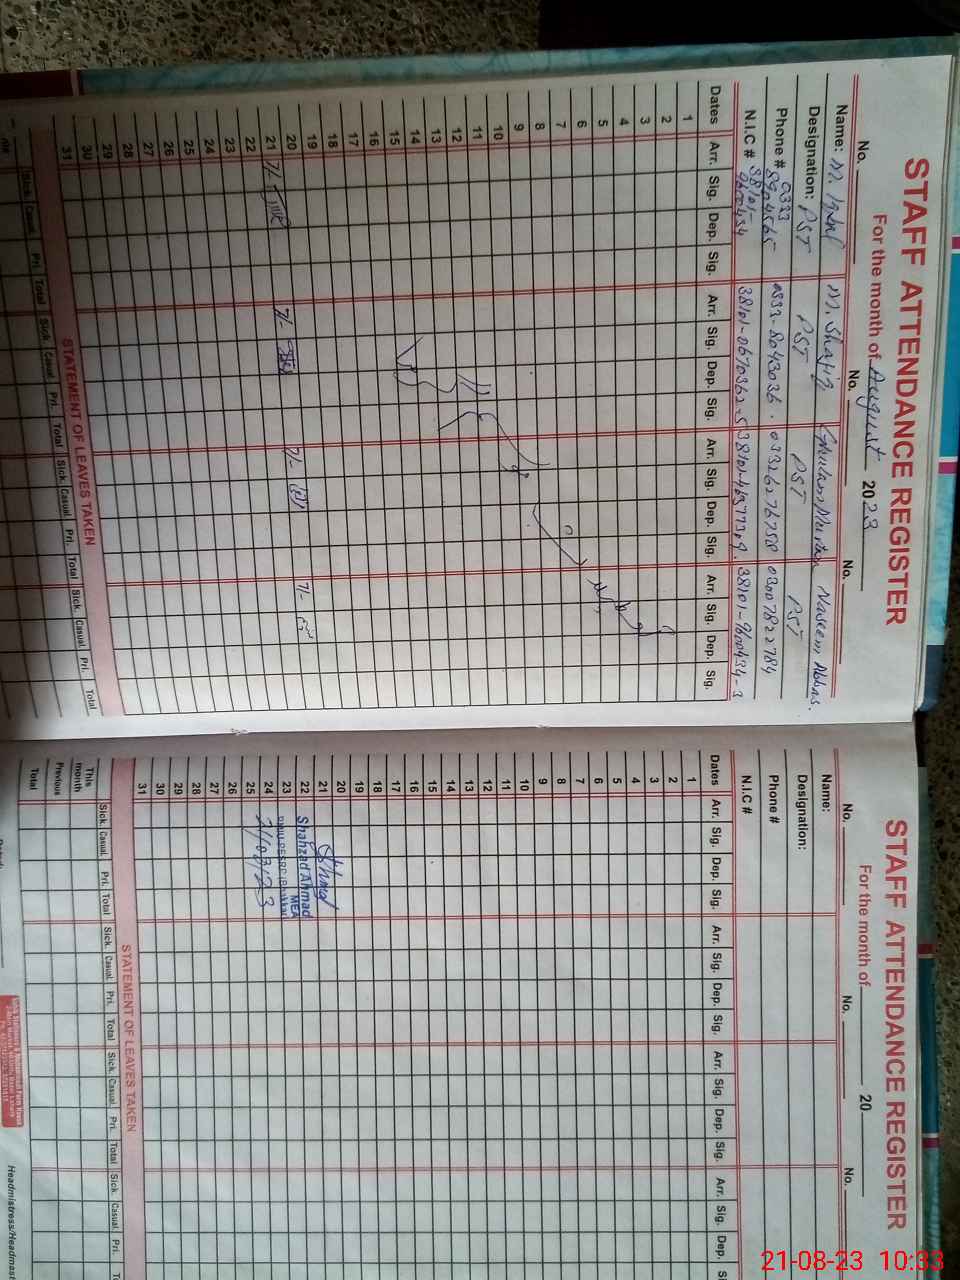 STAFF ATTENDANCE REGISTER
For the month of August 2023
No. No. No.
Name: M. Iqbal M. Shafiq Ghulam Murtaza Naseem Abbas.
Designation: PST PST PST PST
Phone # 0333 8904565 0333-8043036. 03326276758 03007822784
N.I.C # 38101- 38101-0670362-5 38101-9600434-3
Dates Arr. Sig. Dep. Sig. Arr. Sig. Dep. Sig. Arr. Sig. Dep. Sig. Arr. Sig. Dep. Sig.
1
2
3
4
5
6
7
8
9
10
11
12
13
14
15
16
17
18
19
20
21 7/- 7/- 7/- 7/-
22
23
24
25
26
27
28
29
30
31
STATEMENT OF LEAVES TAKEN
Sick. Casual. Pri. Total Sick. Casual. Pri. Total Sick. Casual. Pri. Total Sick. Casual. Pri. Total
STAFF ATTENDANCE REGISTER
For the month of 20
No. No. No.
Name:
Designation:
Phone #
N.I.C #
Dates Arr. Sig. Dep. Sig. Arr. Sig. Dep. Sig. Arr. Sig. Dep. Sig. Arr. Sig. Dep.
1
2
3
4
5
6
7
8
9
10
11
12
13
14
15
16
17
18
19
20
21
22 Shahzad Ahmad
MEA
23
24 21/08/23
25
26
27
28
29
30
31
STATEMENT OF LEAVES TAKEN
Sick. Casual. Pri. Total Sick. Casual. Pri. Total Sick. Casual. Pri. Total Sick. Casual. Pri.
This month
Previous
Total
Headmistress/Headmast
21-08-23 10:33